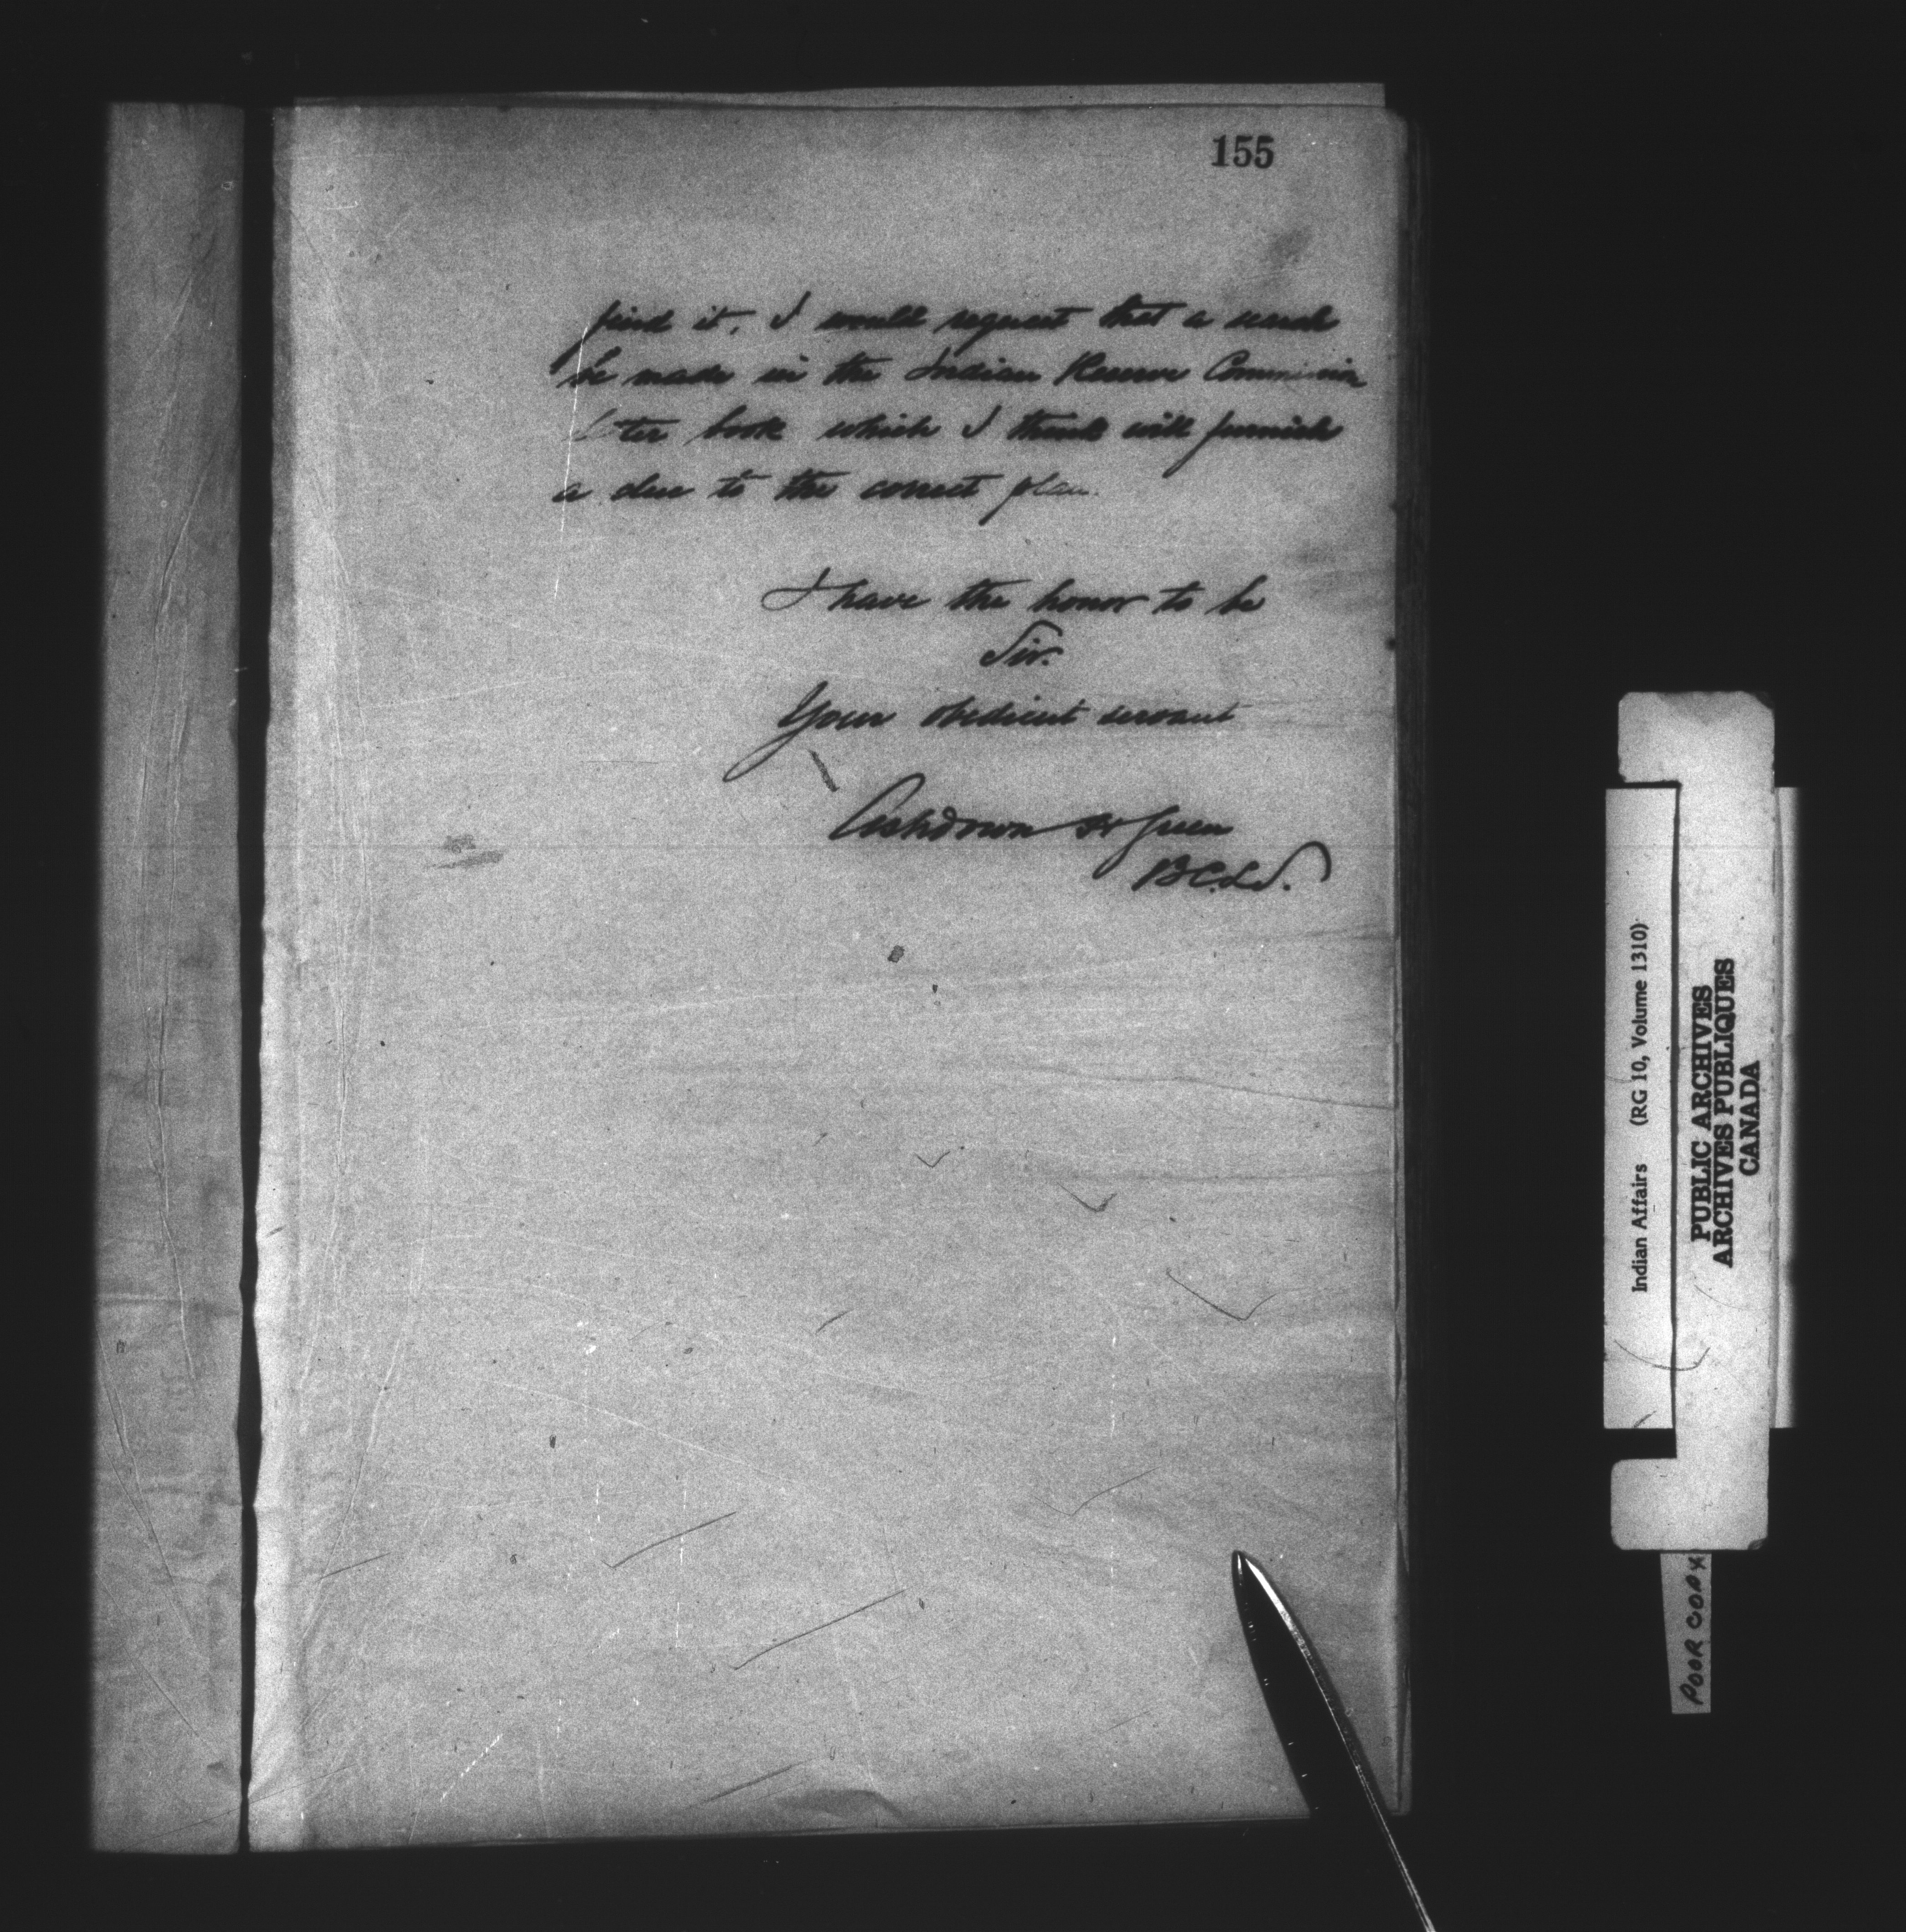 155
find it. I would request that a search
be made in the Indian Reserve Commission
letter book which I think will furnish
a clue to the correct plan.
I have the honor to be
Sir.
Your obedient servant
Ashdown H Green
B.C.L.S.
Indian Affairs (RG 10, Volume 1310)
PUBLIC ARCHIVES
ARCHIVES PUBLIQUES
CANADA
POOR COPY